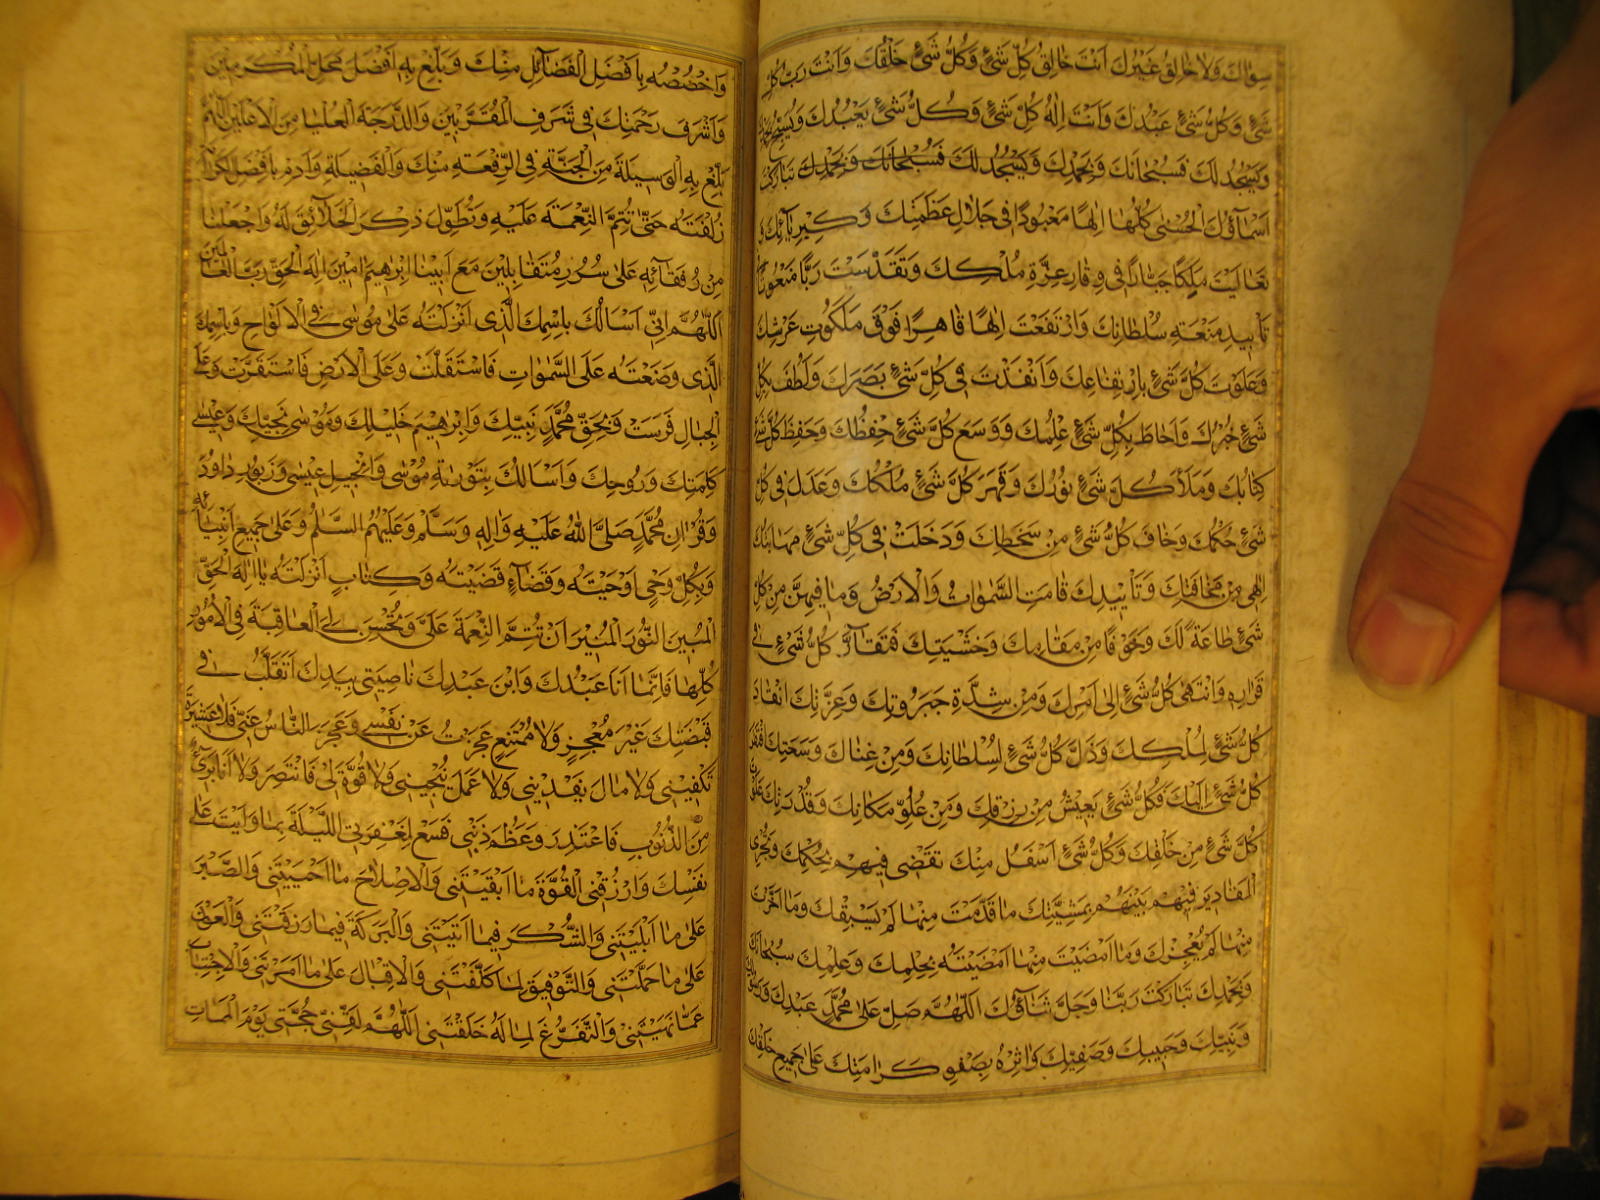 سِوٰاكَ وَلٰا خٰالِقَ غَيْرُكَ اَنْتَ خٰالِقُ كُلِّ شَيْءٍ وَكُلُّ شَيْءٍ خَلْقُكَ وَاَنْتَ رَبُّ كُلِّ
شَيْءٍ وَكُلُّ شَيْءٍ عَبْدُكَ وَاَنْتَ اِلٰهُ كُلِّ شَيْءٍ وَكُلُّ شَيْءٍ يَعْبُدُكَ وَيُسَبِّحُ
وَيَسْجُدُ لَكَ فَسُبْحٰانَكَ وَبِحَمْدِكَ وَيَسْجُدُ لَكَ فَسُبْحٰانَكَ وَبِحَمْدِكَ تَبٰارَكَتْ
اَسْمٰآؤُكَ الْحُسْنٰى كُلُّهٰا اِلٰهًا مَعْبُودًا فِي جَلٰالِ عَظَمَتِكَ وَكِبْرِيٰآئِكَ وَ
تَعٰالَيْتَ مَلِكًا جَبّٰارًا فِي وَقٰارِ عِزَّةِ مُلْكِكَ وَتَقَدَّسْتَ رَبًّا مَنْعُوتًا
تَأْيِيدِ مَنْعَةِ سُلْطٰانِكَ وَارْتَفَعْتَ اِلٰهًا قٰاهِرًا فَوْقَ مَلَكُوتِ عَرْشِكَ
وَعَلَوْتَ كُلَّ شَيْءٍ بِارْتِفٰاعِكَ وَاَنْفَذْتَ فِي كُلِّ شَيْءٍ بَصَرَكَ وَلَطُفَ بِكُلِّ
شَيْءٍ خُبْرُكَ وَاَحٰاطَ بِكُلِّ شَيْءٍ عِلْمُكَ وَوَسِعَ كُلَّ شَيْءٍ حِفْظُكَ وَحَفِظَ كُلَّ شَيْءٍ
كِتٰابُكَ وَمَلَأَ كُلَّ شَيْءٍ نُورُكَ وَقَهَرَ كُلَّ شَيْءٍ مُلْكُكَ وَعَدَلَ فِي كُلِّ
شَيْءٍ حُكْمُكَ وَخٰافَ كُلُّ شَيْءٍ مِنْ سَخَطِكَ وَدَخَلَتْ فِي كُلِّ شَيْءٍ مَهٰابَتُكَ
اِلٰهِي مِنْ مَخٰافَتِكَ وَتَأْيِيدِكَ قٰامَتِ السَّمٰوٰاتُ وَالْاَرْضُ وَمٰا فِيهِنَّ مِنْ كُلِّ
شَيْءٍ طٰاعَةً لَكَ وَخَوْفًا مِنْ مَقٰامِكَ وَخَشْيَتِكَ فَتَقٰآرَّ كُلُّ شَيْءٍ فِي
قَرٰارِهِ وَانْتَهٰى كُلُّ شَيْءٍ اِلٰى اَمْرِكَ وَمِنْ شِدَّةِ جَبَرُوتِكَ وَعِزَّتِكَ انْقٰادَ
كُلُّ شَيْءٍ لِمُلْكِكَ وَذَلَّ كُلُّ شَيْءٍ لِسُلْطٰانِكَ وَمِنْ غِنٰاكَ وَسَعَتِكَ افْتَقَرَ
كُلُّ شَيْءٍ اِلَيْكَ فَكُلُّ شَيْءٍ يَعِيشُ مِنْ رِزْقِكَ وَمِنْ عُلُوِّ مَكٰانِكَ وَقُدْرَتِكَ عَلَوْتَ
كُلَّ شَيْءٍ مِنْ خَلْقِكَ وَكُلُّ شَيْءٍ اَسْفَلُ مِنْكَ تَقْضِي فِيهِمْ بِحُكْمِكَ وَتُجْرِي
الْمَقٰادِيرَ فِيهِمْ بَيْنَهُمْ بِمَشِيَّتِكَ مٰا قَدَّمْتَ مِنْهٰا لَمْ يَسْبِقْكَ وَمٰا اَخَّرْتَ
مِنْهٰا لَمْ يُعْجِزْكَ وَمٰا اَمْضَيْتَ مِنْهٰا اَمْضَيْتَهُ بِحِلْمِكَ وَعِلْمِكَ سُبْحٰانَكَ
وَبِحَمْدِكَ تَبٰارَكْتَ رَبَّنٰا وَجَلَّ ثَنٰآؤُكَ اَللّٰهُمَّ صَلِّ عَلٰى مُحَمَّدٍ عَبْدِكَ وَرَسُولِكَ
وَنَبِيِّكَ وَحَبِيبِكَ وَصَفِيِّكَ وَاٰثِرْهُ بِصَفْوِ كَرٰامَتِكَ عَلٰى جَمِيعِ خَلْقِكَ
وَاخْصُصْهُ بِاَفْضَلِ الْفَضٰآئِلِ مِنْكَ وَبَلِّغْ بِهِ اَفْضَلَ مَحَلِّ الْمُكَرَّمِينَ
وَاَشْرَفَ رَحْمَتِكَ فِي شَرَفِ الْمُقَرَّبِينَ وَالدَّرَجَةَ الْعُلْيٰا مِنَ الْاَعْلَيْنَ اَللّٰهُمَّ
بَلِّغْ بِهِ الْوَسِيلَةَ مِنَ الْجَنَّةِ فِي الرِّفْعَةِ مِنْكَ وَالْفَضِيلَةِ وَاَدِمْ بِاَفْضَلِ
زُلْفَتَهُ حَتّٰى تُتِمَّ النِّعْمَةَ عَلَيْهِ وَتُطَوِّلَ ذِكْرَ الْخَلٰآئِقِ لَهُ وَاجْعَلْنٰا
مِنْ رُفَقٰآئِهِ عَلٰى سُرُرٍ مُتَقٰابِلِينَ مَعَ اَبِينٰا اِبْرٰهِيمَ اٰمِينَ اِلٰهَ الْحَقِّ رَبَّ الْعٰالَمِينَ
اَللّٰهُمَّ اِنِّي اَسْاَلُكَ بِاسْمِكَ الَّذِي اَنْزَلْتَهُ عَلٰى مُوسٰى فِي الْاَلْوٰاحِ وَبِاسْمِكَ
الَّذِي وَضَعْتَهُ عَلَى السَّمٰوٰاتِ فَاسْتَقَلَّتْ وَعَلَى الْاَرْضِ فَاسْتَقَرَّتْ وَعَلَى
الْجِبٰالِ فَرَسَتْ وَبِحَقِّ مُحَمَّدٍ نَبِيِّكَ وَاِبْرٰهِيمَ خَلِيلِكَ وَمُوسٰى نَجِيِّكَ وَعِيسٰى
كَلِمَتِكَ وَرُوحِكَ وَاَسْاَلُكَ بِتَوْرٰيةِ مُوسٰى وَاِنْجِيلِ عِيسٰى وَزَبُورِ دٰاوُدَ
وَقُرْاٰنِ مُحَمَّدٍ صَلَّى اللّٰهُ عَلَيْهِ وَاٰلِهِ وَسَلَّمَ وَعَلَيْهِمُ السَّلٰمُ وَعَلٰى جَمِيعِ اَنْبِيٰآئِهِ
وَبِكُلِّ وَحْيٍ اَوْحَيْتَهُ وَقَضٰآءٍ قَضَيْتَهُ وَكِتٰابٍ اَنْزَلْتَهُ يٰا اِلٰهَ الْحَقِّ
الْمُبِينِ النُّورَ الْمُبِيرَ اَنْ تُتِمَّ النِّعْمَةَ عَلَيَّ وَتُحْسِنَ لِيَ الْعٰاقِبَةَ فِي الْاُمُورِ
كُلِّهٰا فَاِنَّمٰا اَنَا عَبْدُكَ وَابْنُ عَبْدِكَ نٰاصِيَتِي بِيَدِكَ اَتَقَلَّبُ فِي
قَبْضَتِكَ غَيْرَ مُعْجِزٍ وَلٰا مُمْتَنِعٍ عَجَزْتُ عَنْ نَفْسِي وَعَجَزَ النّٰاسُ عَنِّي فَلٰا عَشِيرَةَ
تَكْفِينِي وَلٰا مٰالَ يَفْدِينِي وَلٰا عَمَلَ يُنْجِينِي وَلٰا قُوَّةَ لِي فَانْتَصِرَ وَلٰا اَنَا بَرِيءٌ
مِنَ الذُّنُوبِ فَاَعْتَذِرَ وَعَظُمَ ذَنْبِي فَسَعْ لِمَغْفِرَتِي اللَّيْلَةَ بِمٰا وَاَيْتَ عَلٰى
نَفْسِكَ وَارْزُقْنِي الْقُوَّةَ مٰا اَبْقَيْتَنِي وَالْاِصْلٰاحَ مٰا اَحْيَيْتَنِي وَالصَّبْرَ
عَلٰى مٰا اَبْلَيْتَنِي وَالشُّكْرَ فِيمٰا اٰتَيْتَنِي وَالْبَرَكَةَ فِيمٰا رَزَقْتَنِي وَالْعَوْنَ
عَلٰى مٰا حَمَّلْتَنِي وَالتَّوْفِيقَ لِمٰا كَلَّفْتَنِي وَالْاِقْبٰالَ عَلٰى مٰا اَمَرْتَنِي وَالْاِجْتِنٰابَ
عَمّٰا نَهَيْتَنِي وَالتَّفَرُّغَ لِمٰا لَهُ خَلَقْتَنِي اَللّٰهُمَّ لَقِّنِّي حُجَّتِي يَوْمَ الْمَمٰاتِ